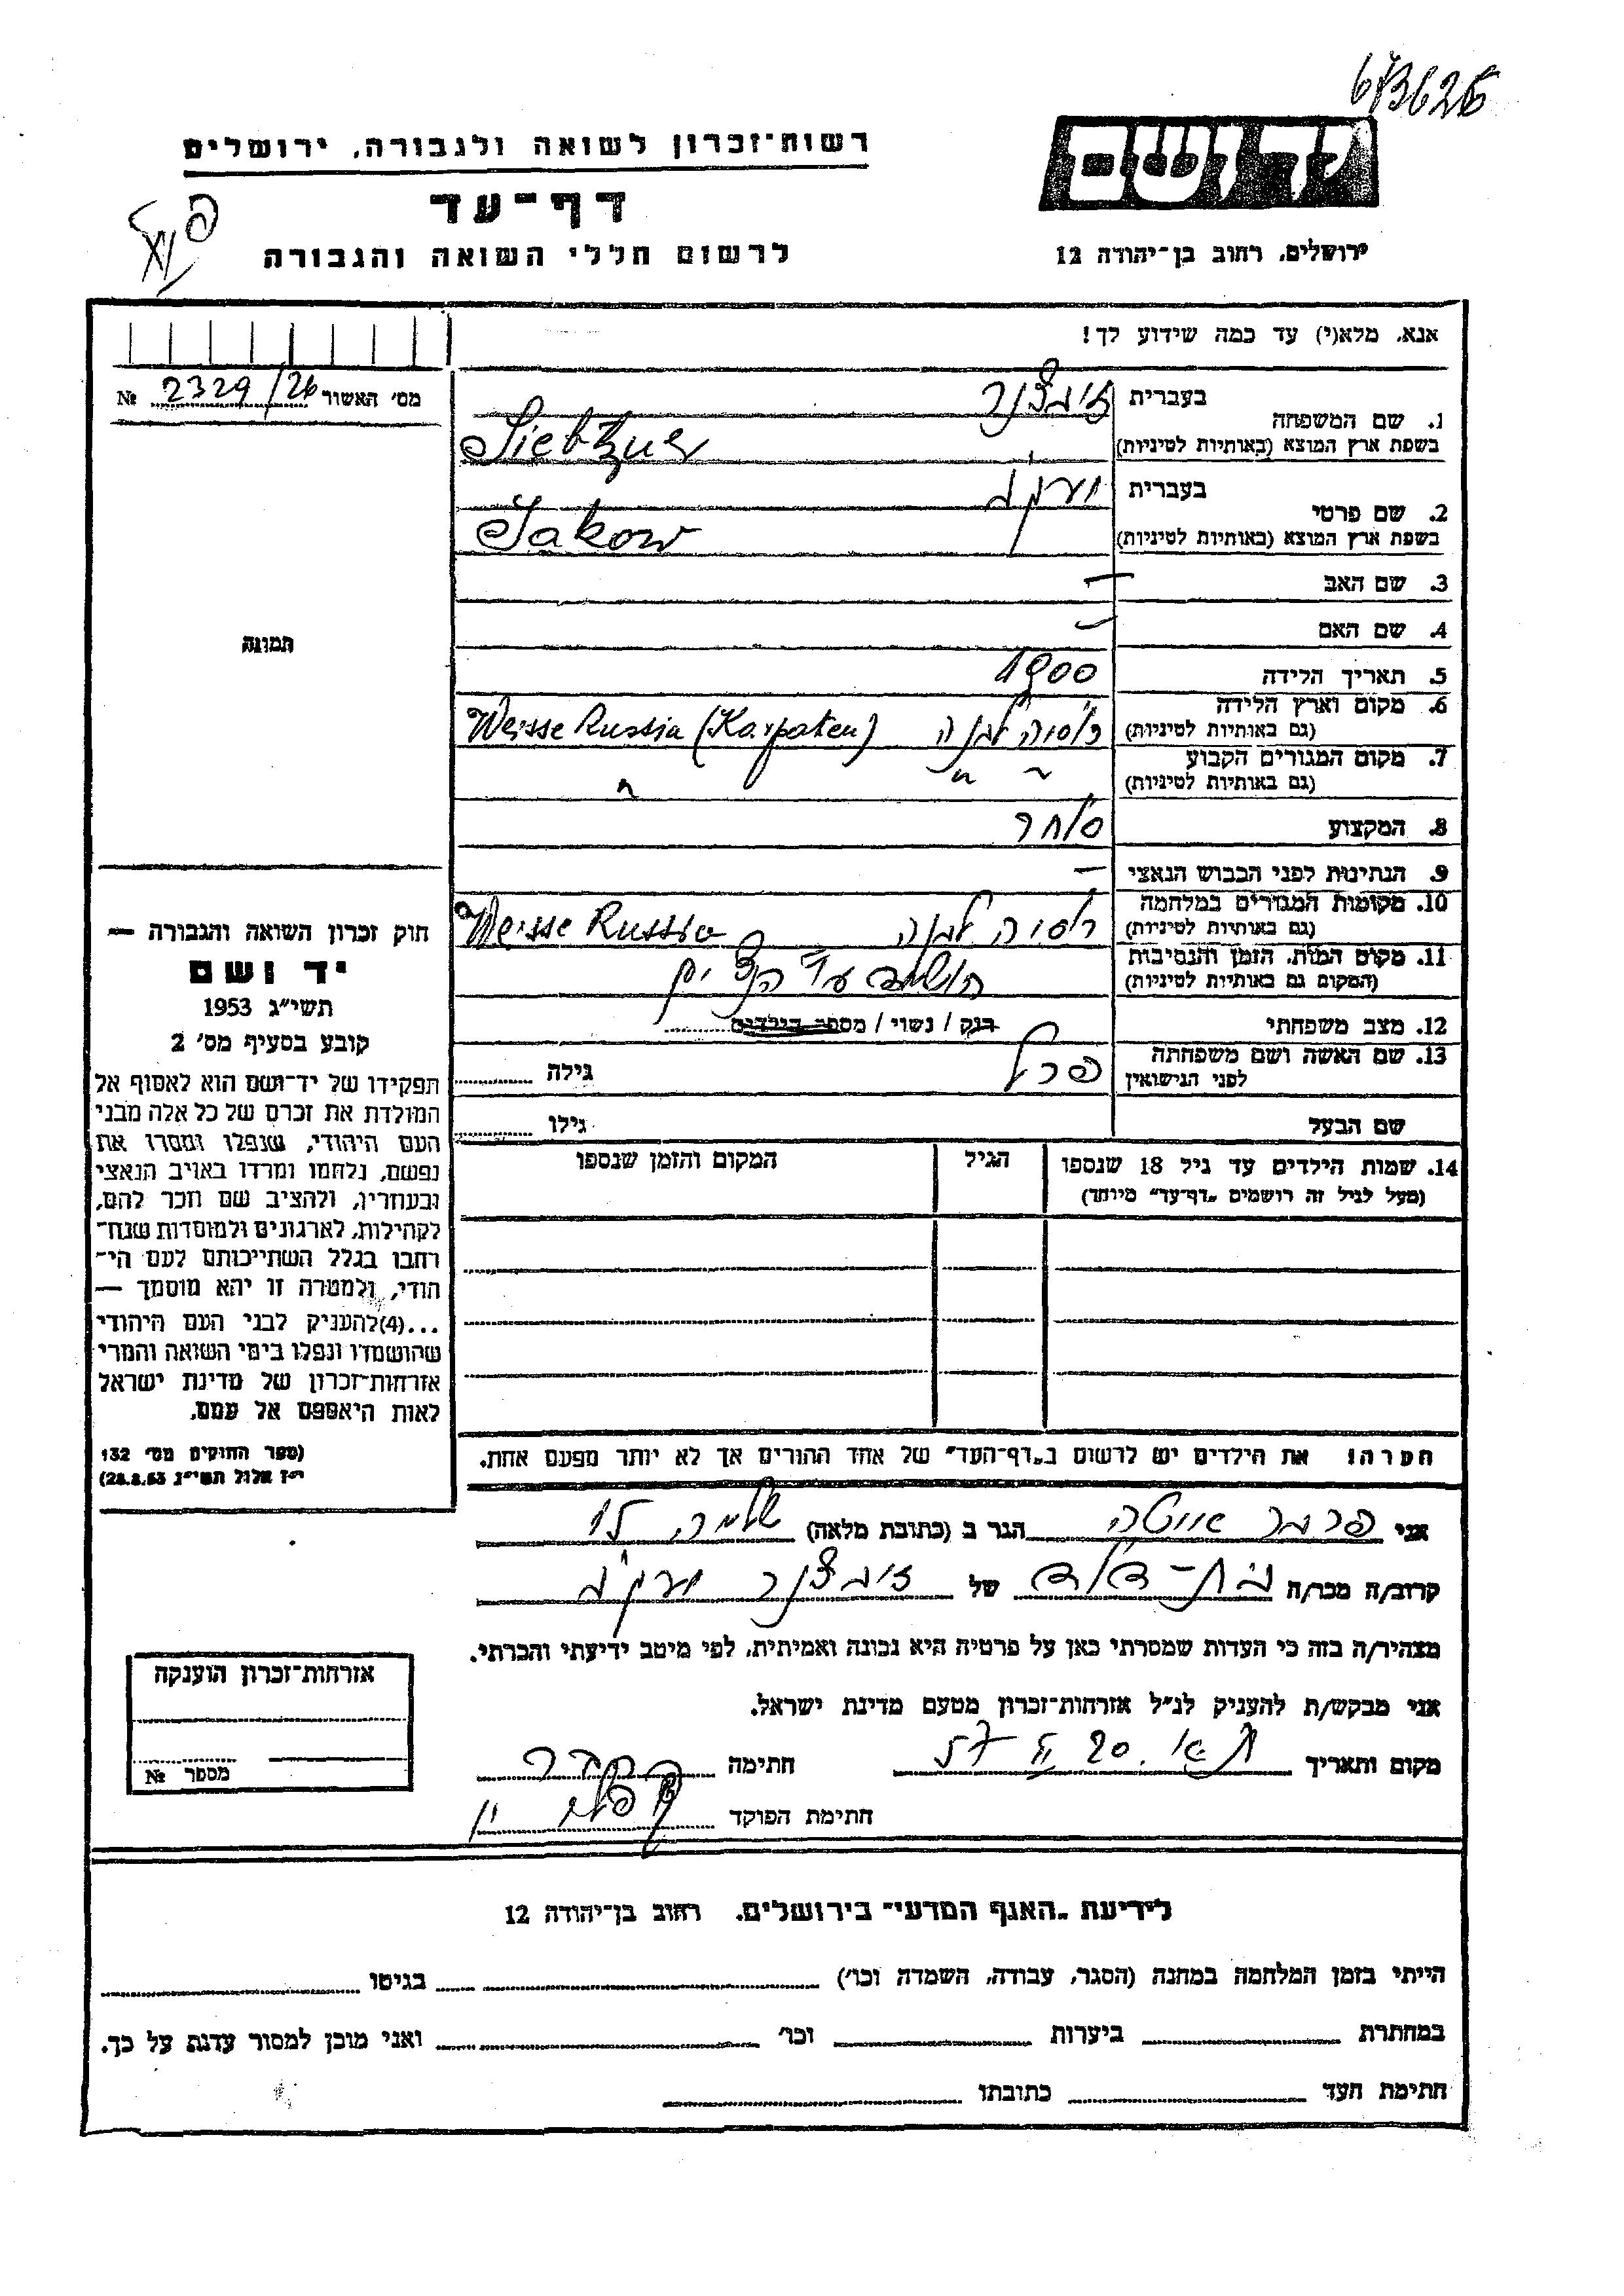 רשות־זכרון לשואה ולגבורה, ירושלים
דף־עד
לרשום חללי השואה והגבורה
ידושם
ירושלים, רחוב בן־יהודה 12
אנא, מלא(י) עד כמה שידוע לך!
מס׳ האשור 2329/26 №
תמונה
1. שם המשפחה בעברית זיבצנר
בשפת ארץ המוצא (באותיות לטיניות) Siebzner
2. שם פרטי בעברית יעקב
בשפת ארץ המוצא (באותיות לטיניות) Jakow
3. שם האב —
4. שם האם —
5. תאריך הלידה 1900
6. מקום וארץ הלידה רוסיה לבנה Weisse Russia (Karpaten)
(גם באותיות לטיניות)
7. מקום המגורים הקבוע
(גם באותיות לטיניות) " "
8. המקצוע סוחר
9. הנתינות לפני הכבוש הנאצי —
10. מקומות המגורים במלחמה רוסיה לבנה Weisse Russia
(גם באותיות לטיניות)
11. מקום המות, הזמן והנסיבות
(המקום גם באותיות לטיניות) הושמד ע״י הנצים
12. מצב משפחתי רוק / נשוי / מספר הילדים
13. שם האשה ושם משפחתה פרל גילה
לפני הנישואין
שם הבעל גילו
14. שמות הילדים עד גיל 18 שנספו הגיל המקום והזמן שנספו
(מעל לגיל זה רושמים „דף־עד״ מיוחד)
הערה! את הילדים יש לרשום ב„דף־העד״ של אחד ההורים אך לא יותר מפעם אחת.
חוק זכרון השואה והגבורה —
יד ושם
תשי״ג 1953
קובע בסעיף מס׳ 2
תפקידו של יד־ושם הוא לאסוף אל
המולדת את זכרם של כל אלה מבני
העם היהודי, שנפלו ומסרו את
נפשם, נלחמו ומרדו באויב הנאצי
ובעוזריו, ולהציב שם וזכר להם,
לקהילות, לארגונים ולמוסדות שנח־
רבו בגלל השתייכותם לעם הי־
הודי, ולמטרה זו יהא מוסמך —
...(4)להעניק לבני העם היהודי
שהושמדו ונפלו בימי השואה והמרי
אזרחות־זכרון של מדינת ישראל
לאות היאספם אל עמם.
(ספר החוקים מס׳ 132
י״ז אלול תשי״ג 28.8.53)
אני פרמר הגר ב (כתובת מלאה)
קרוב/ה מכר/ה בת-דוד של זיבצנר יעקב
מצהיר/ה בזה כי העדות שמסרתי כאן על פרטיה היא נכונה ואמיתית, לפי מיטב ידיעתי והכרתי.
אני מבקש/ת להעניק לנ״ל אזרחות־זכרון מטעם מדינת ישראל.
מקום ותאריך ת״א. 20 57 חתימה
חתימת הפוקד
אזרחות־זכרון הוענקה
מספר №
לידיעת „האגף המדעי״ בירושלים, רחוב בן־יהודה 12
הייתי בזמן המלחמה במחנה (הסגר, עבודה, השמדה וכו׳) בגיטו
במחתרת ביערות וכו׳ ואני מוכן למסור עדות על כך.
חתימת העד כתובתו